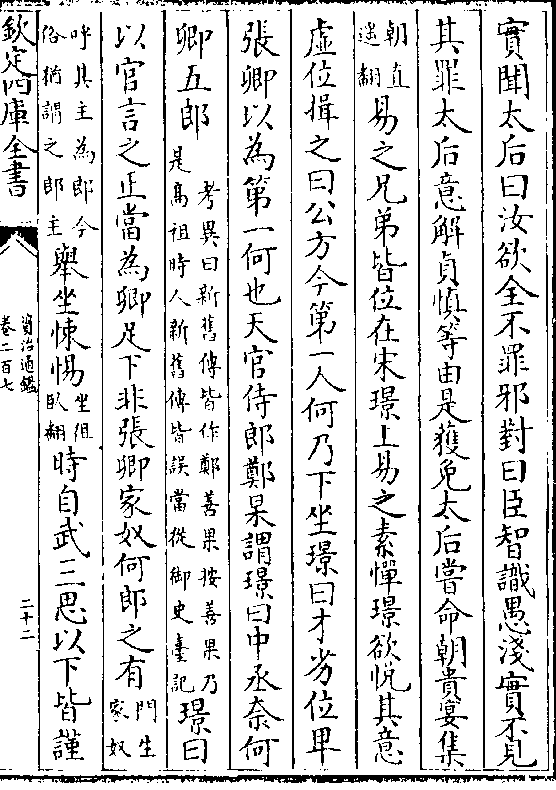 實聞太后曰汝欲全不罪邪對曰臣智識愚淺實不見
其罪太后意解貞慎等由是獲免太后嘗命朝貴宴集
朝直
遥翻
易之兄弟皆位在宋璟上易之素憚璟欲悦其意
虚位揖之曰公方今第一人何乃下坐璟曰才劣位卑
張卿以為第一何也天官侍郎鄭杲謂璟曰中丞奈何
卿五郎
考異曰新舊傳皆作鄭善果按善果乃
是髙祖時人新舊傳皆誤當從御史臺記
璟曰
以官言之正當為卿足下非張卿家奴何郎之有
門生
家奴
呼其主為郎今
俗猶謂之郎主
舉坐悚惕
坐徂
臥翻
時自武三思以下皆謹
欽定四庫全書
資治通鑑
卷二百七
二十二